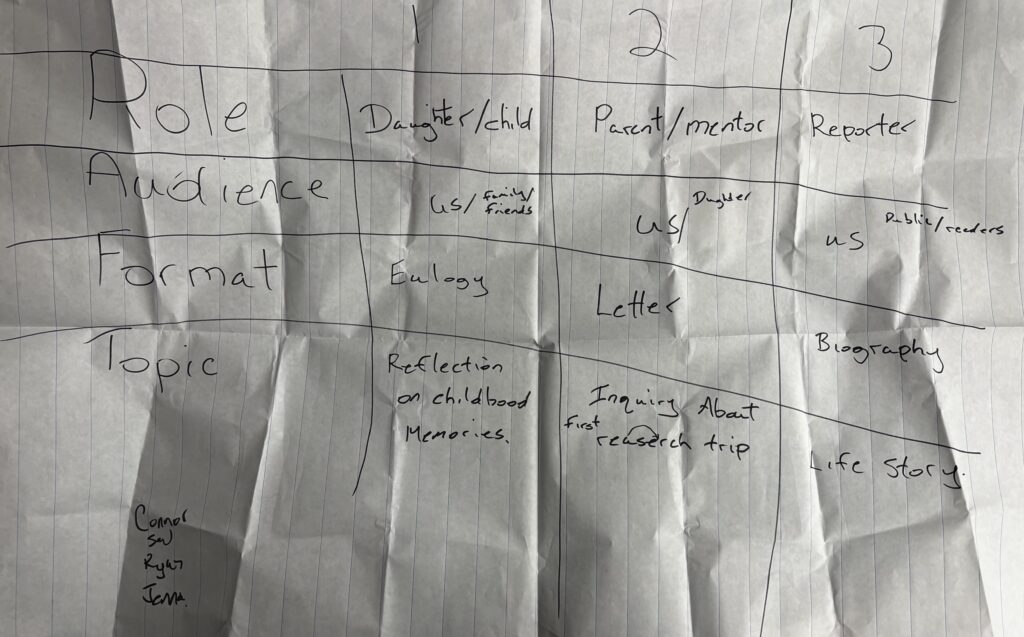 1 2 3
Role Daughter/child Parent/mentor Reporter
Audience us/ family/ friends us/ Dughter us Public/readers
Format Eulogy Letter Biography
Topic Reflection on childhood Memories. Inquiry About first reaserch trip Life Story.
Connor
Ryan